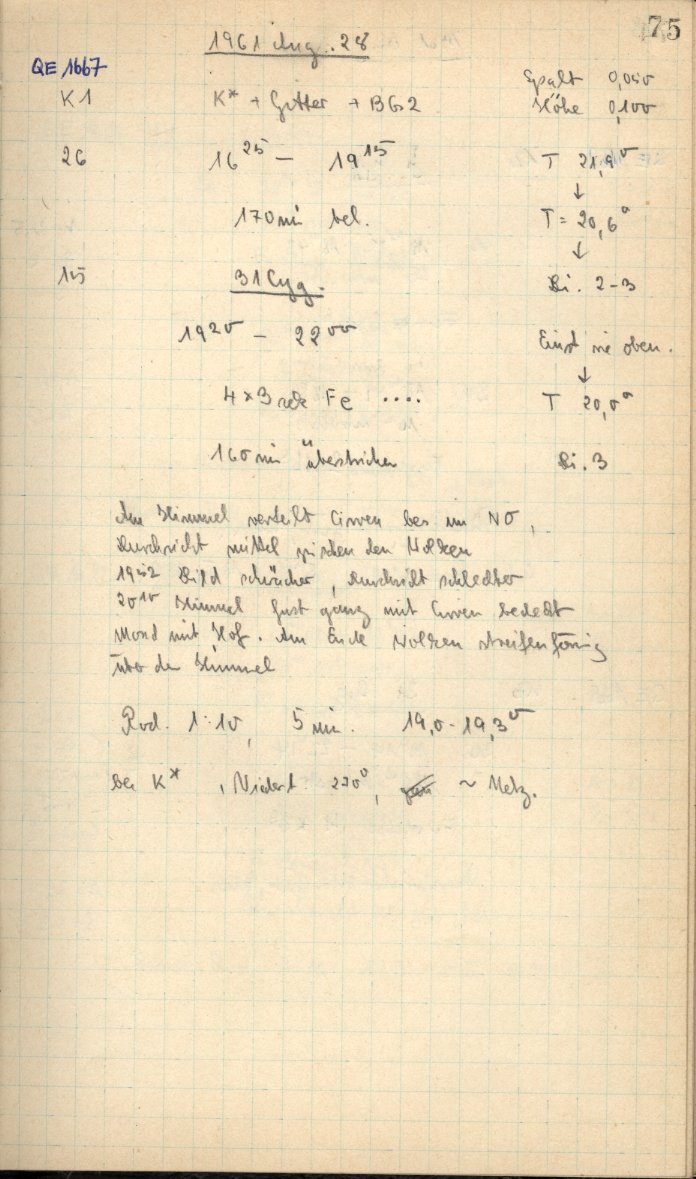 75
1961 Aug. 28
QE 1667
Spalt 0,050
K1 K* + Gitter + BG 2 Höhe 0,100
26 16 25 – 19 15 T 21,9°
↓
170 min bel. T = 20,6°
↓
15 31 Cyg. Bi. 2-3
19 20 – 22 00 Einst wie oben.
↓
4 × 3 sek Fe .... T 20,0°
160 min überstrichen Bi. 3
Am Himmel verteilt Cirren bes im NO,
Durchsicht mittel zwischen den Wolken
19 52 Bild schwächer, Durchsicht schlechter
20 10 Himmel fast ganz mit Cirren bedeckt
Mond mit Hof. Am Ende Wolken streifenförmig
über den Himmel
Rod. 1:10, 5 min. 19,0 - 19,3°
bei K*, 270°, ~